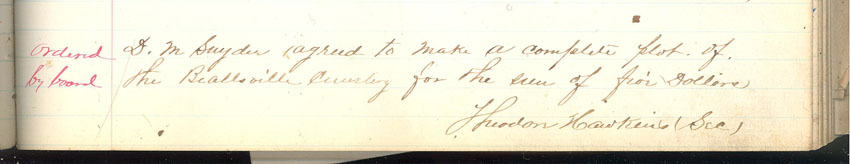 Ordered D. M Snyder agreed to make a complete plot. of.
by board the Beallsville Cemetery for the sum of five Dollars
Theodore Hawkins (Sec)